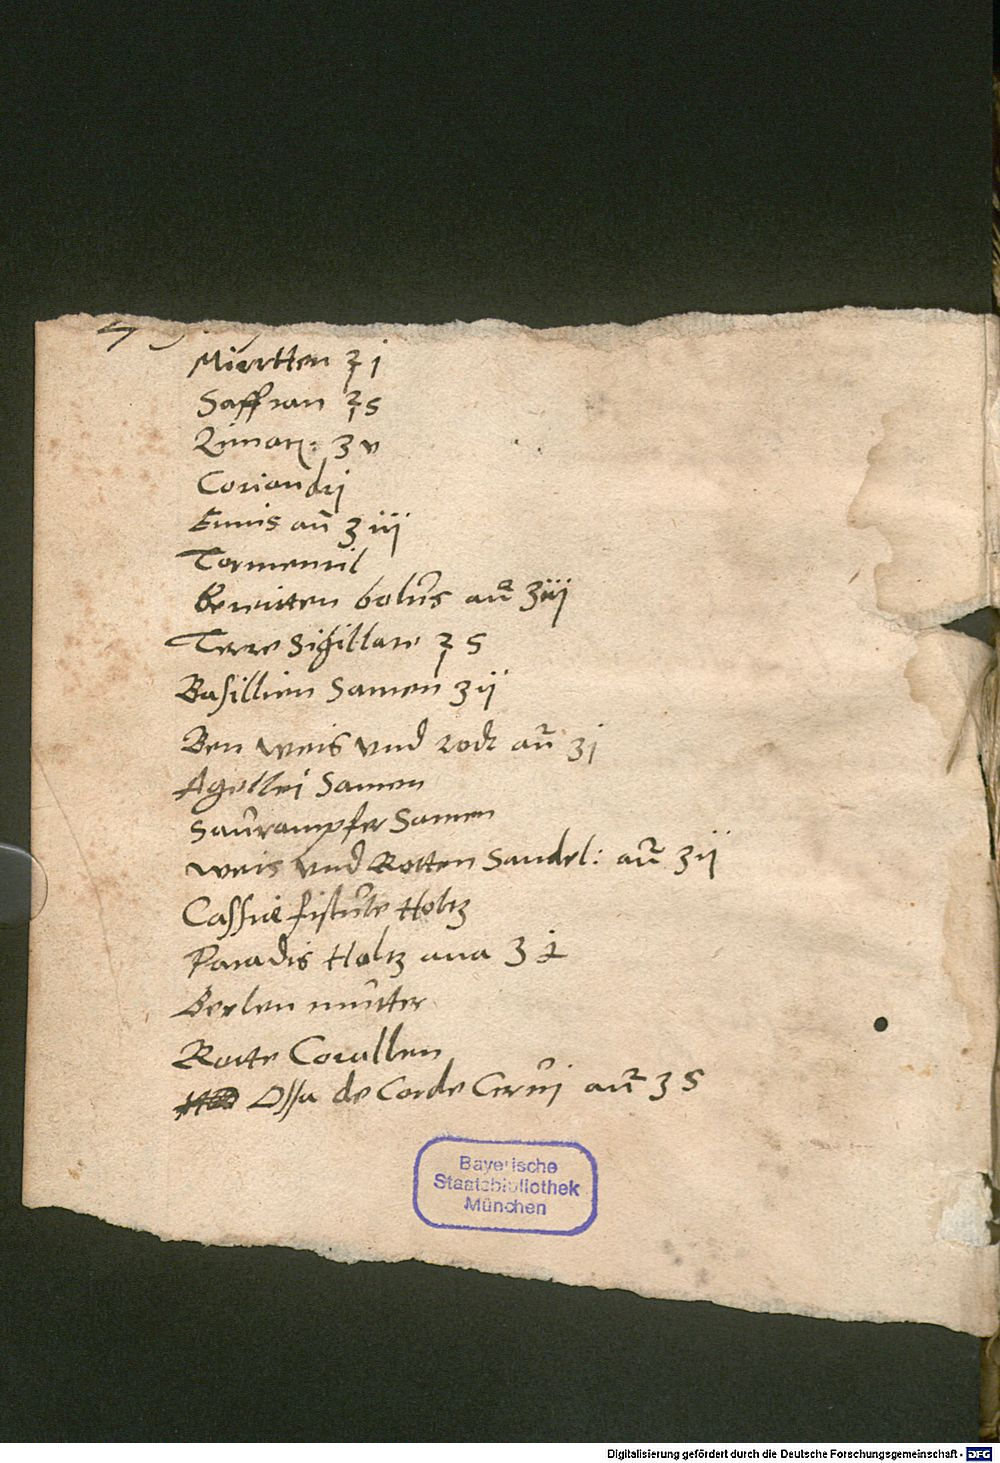 Mierrtten ℥ j
Saffran ℥ s
Zimatz: ʒ v
Coriandrj
Ennis an̄ ʒ iij
Tormentil
Bereitten bolus an̄ ʒ iij
Terre Sigillate ℥ s
Basillien Samen ʒ ij
Ben weis vnd rodt an̄ ʒ j
Agellei Samen
Saurampfer Samen
Weis vnd Rotten Sandel: an̄ ʒ ij
Cassiæ fistule Holtz
Paradis Holtz ana ʒ
Berlen mutter
Rotte Corallen
Ossa de Corde Cervj an̄ ʒ s
Bayerische
Staatsbibliothek
München
Digitalisierung gefördert durch die Deutsche Forschungsgemeinschaft - DFG